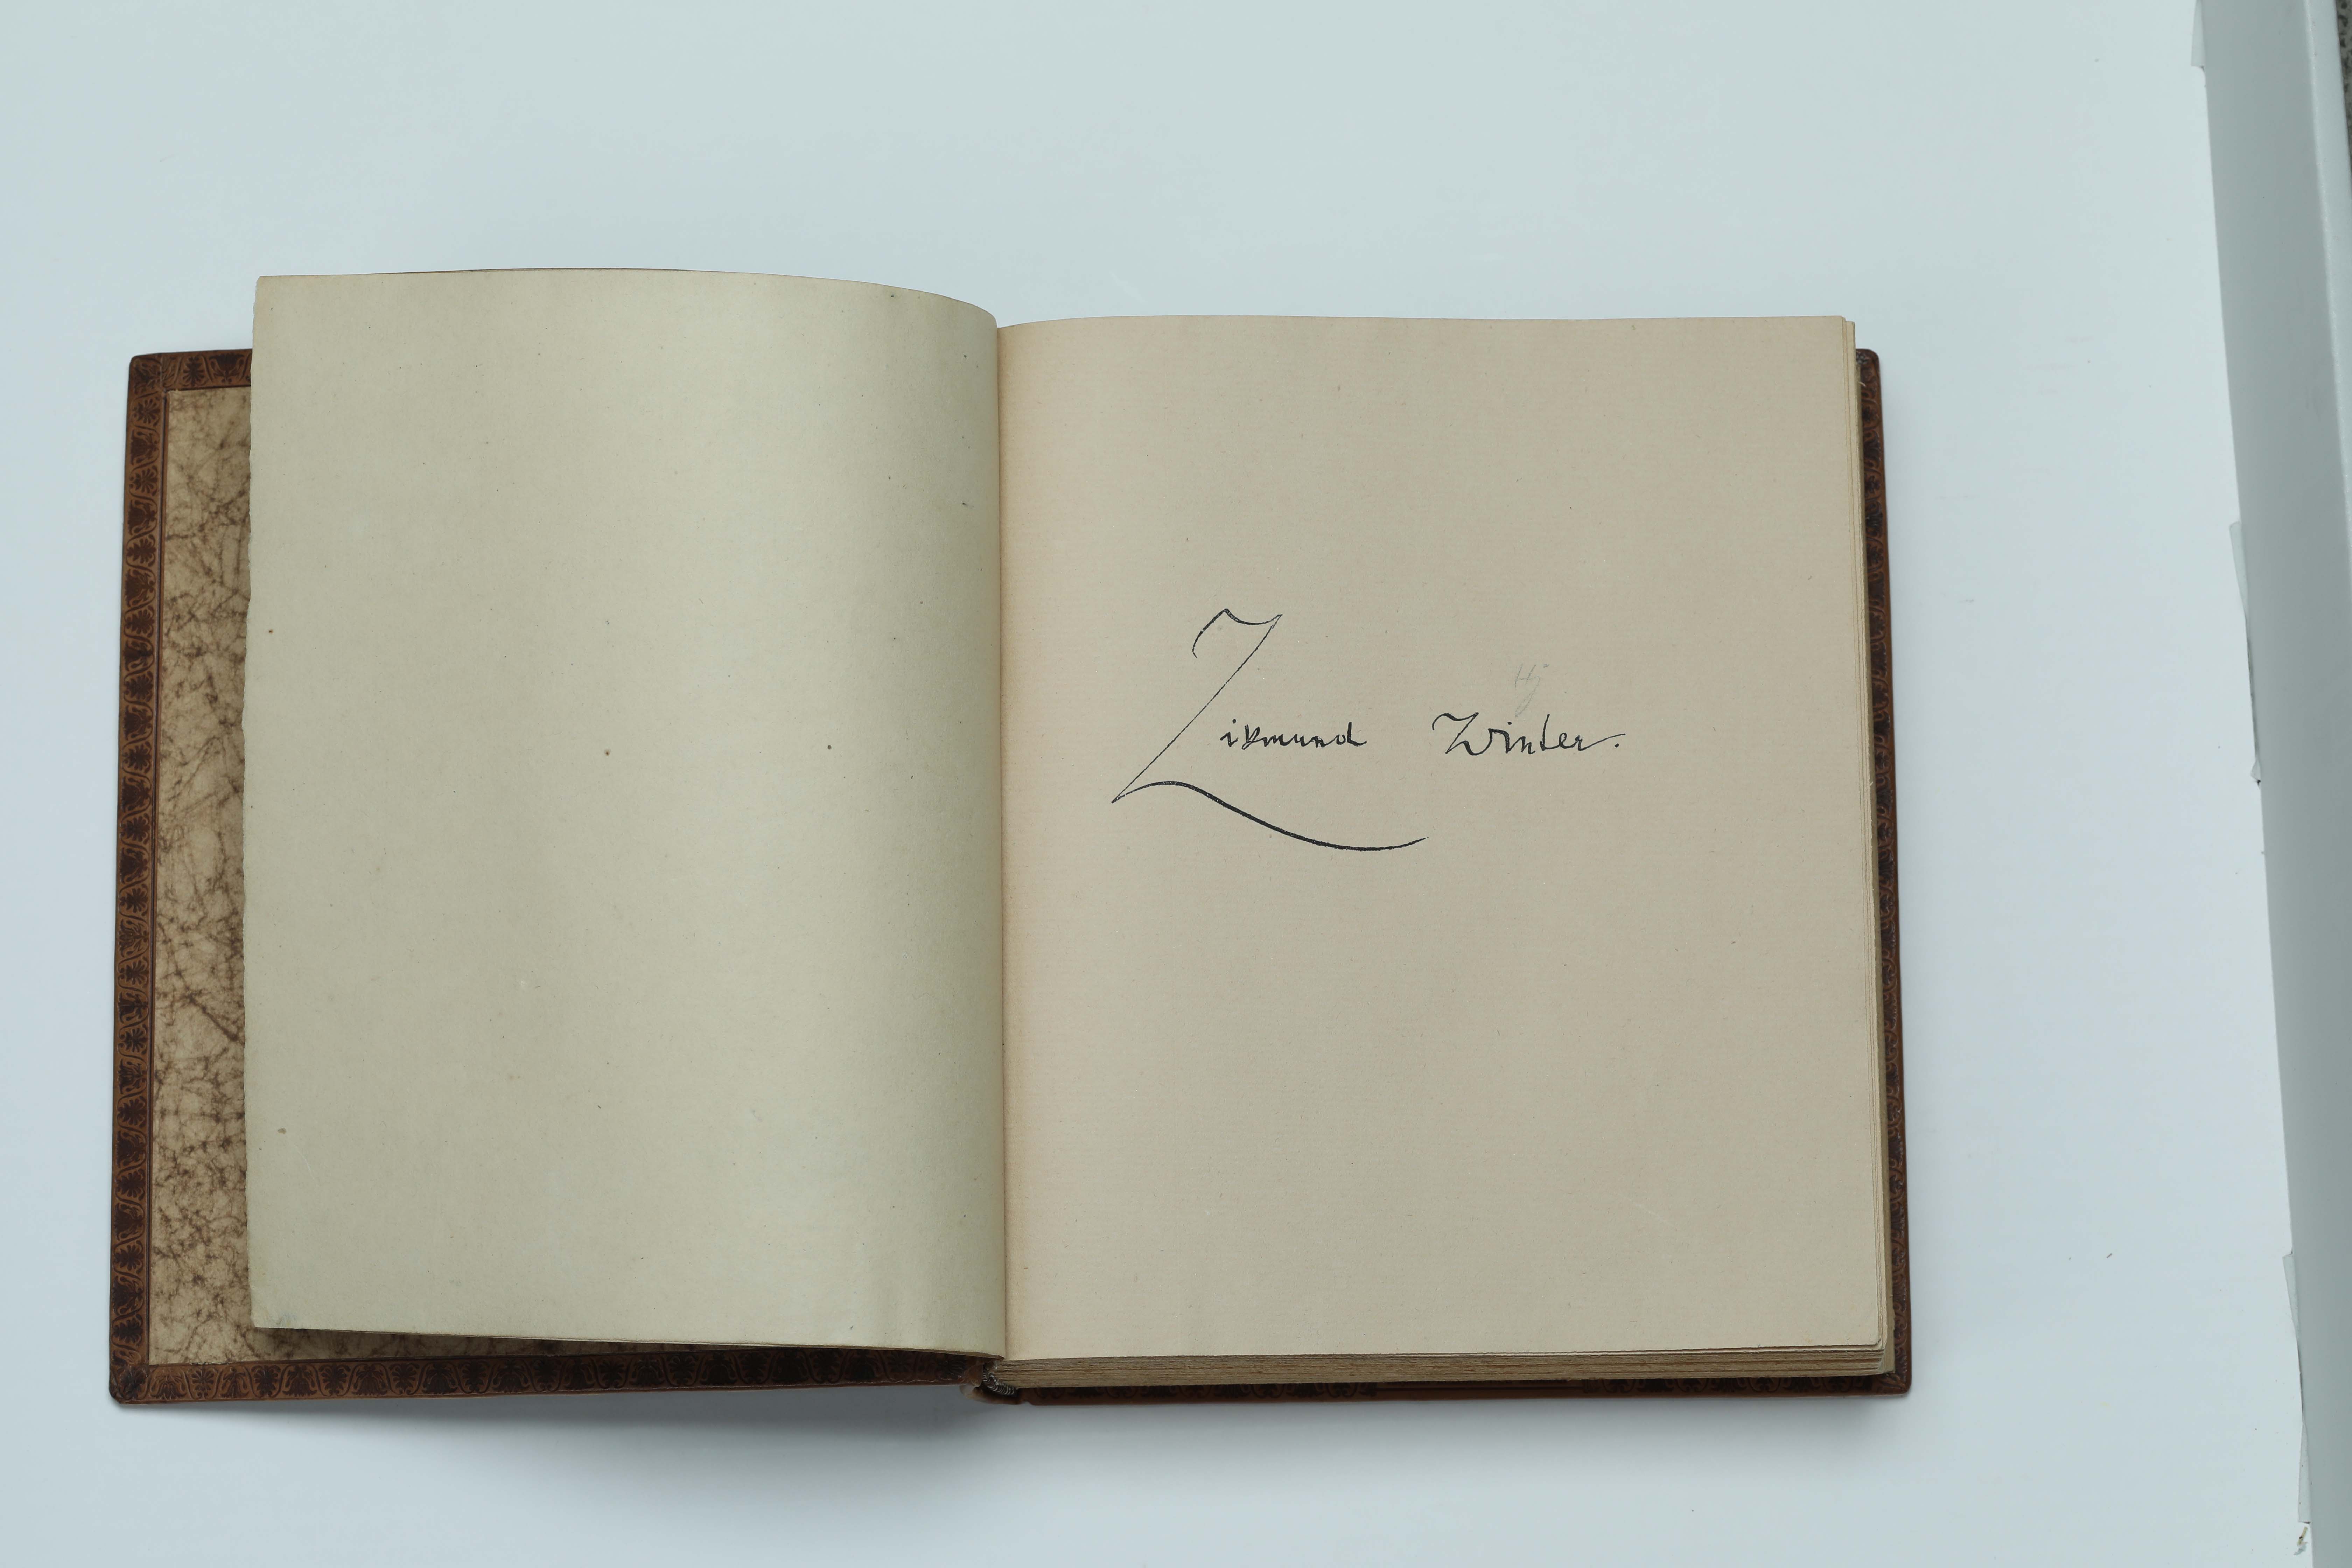 Zikmund Winter.